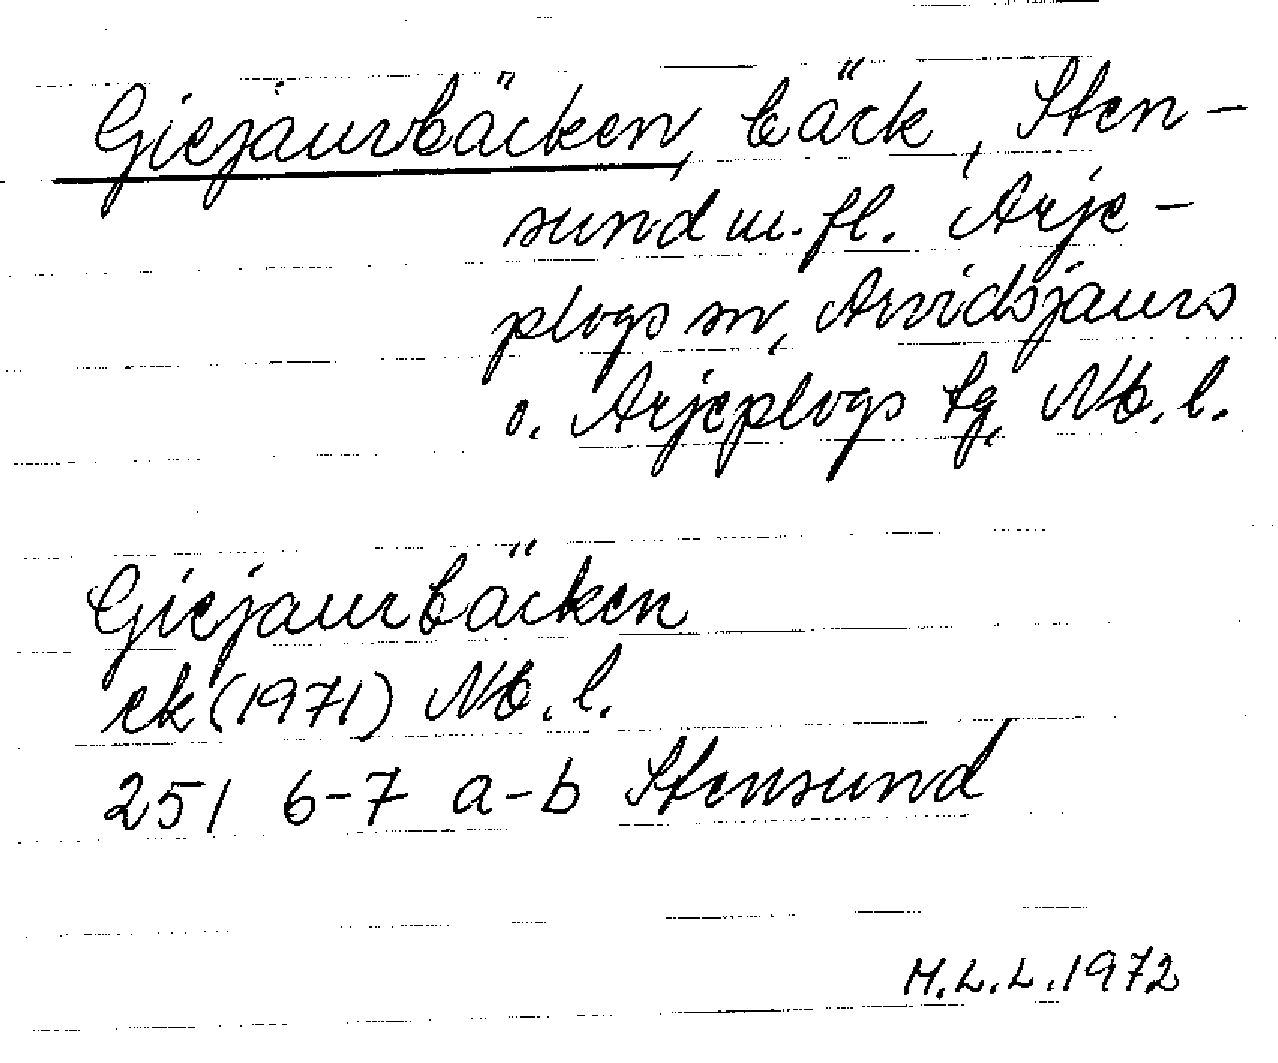 Giejaurbäcken, bäck, Sten-
sund m.fl. Arje-
plogs sn, Arvidsjaurs
o. Arjeplogs tg, Nb. l.
Giejaurbäcken
ek (1971) Nb. l.
251 6-7 a-b Stensund
M.L.L. 1972